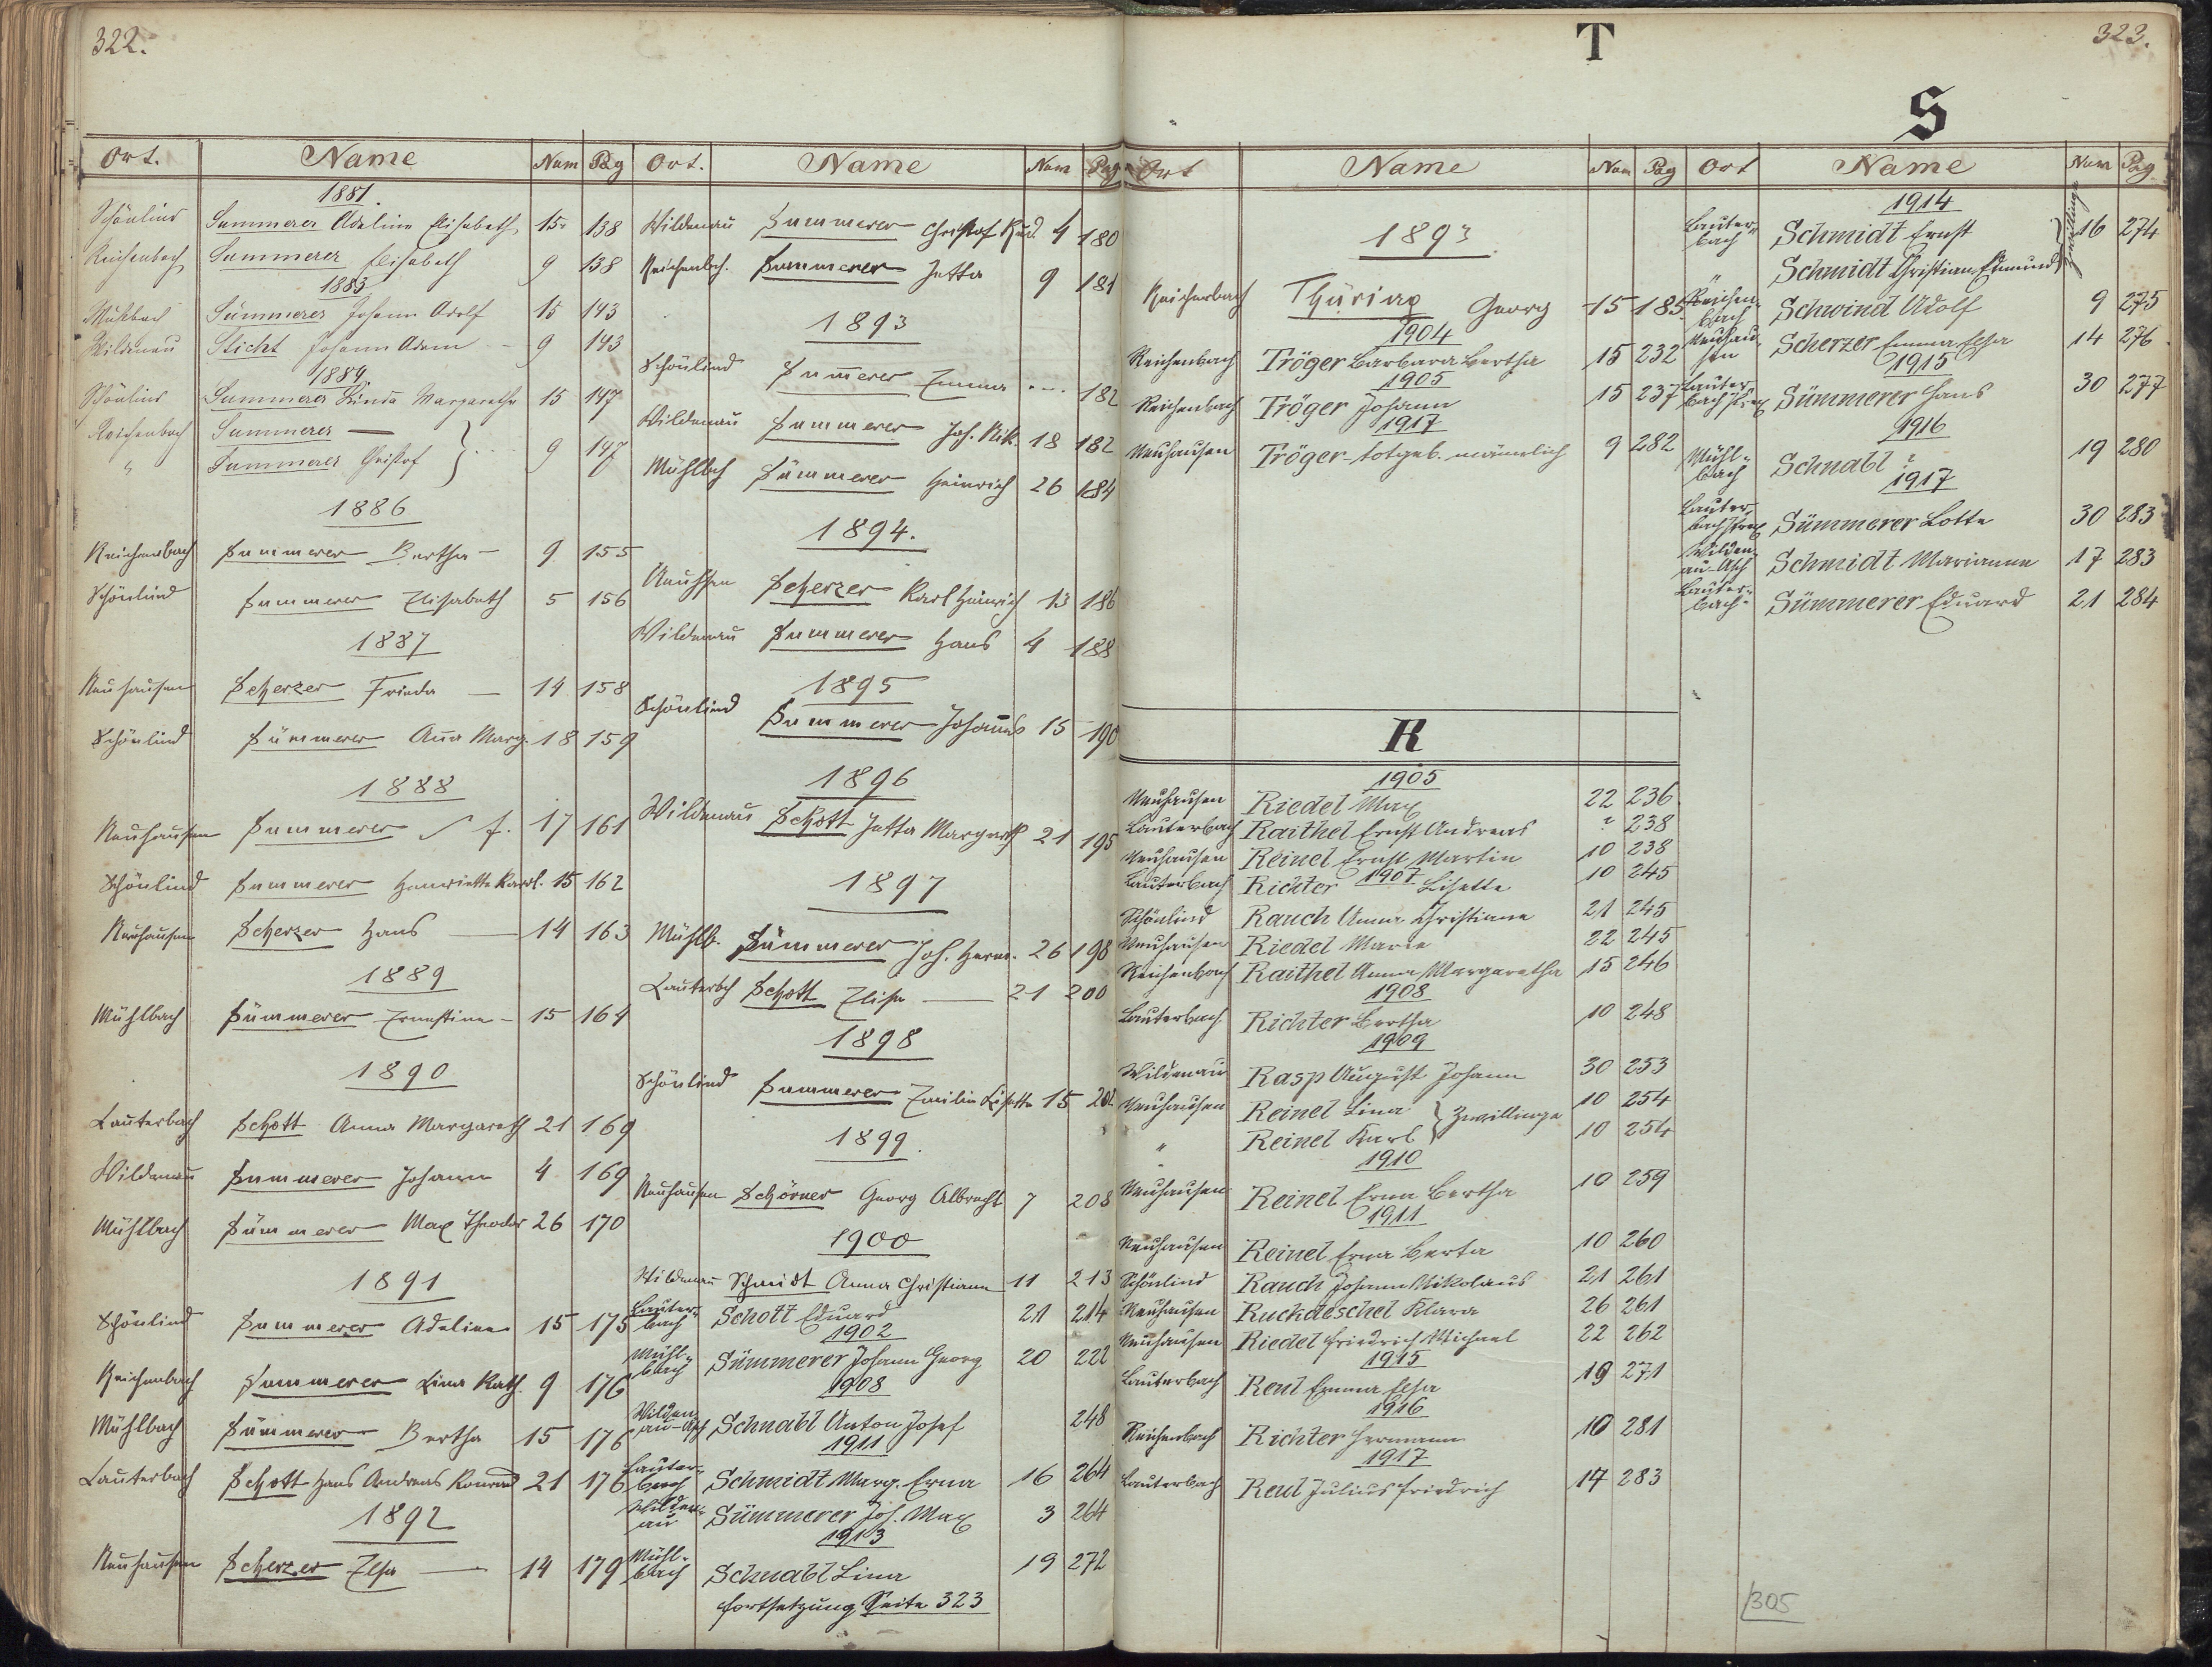 322.
Ort. Name Num Pag
1881.
Schönlind Summerer Adeline Elisabeth 15. 138
Reichenbach Summerer Elisabeth 9 138
1883
Mühlbach Sümmerer Johann Adolf 15 143
Wildenau Sticht Johann Adam - 9 143
1884
Schönlind Summerer Linda Margaretha 15 147
Reichenbach Summerer —
" Summerer Christof } 9 147
1886
Reichenbach Summerer Bertha - 9 155
Schönlind Summerer Elisabeth 5 156
1887
Neuhausen Scherzer Frieda — 14 158
Schönlind Sümmerer Anna Marg. 18 159
1888
Neuhausen Summerer 17 161
Schönlind Summerer Henriette Karol. 15 162
Neuhausen Scherzer Hans — 14 163
1889
Mühlbach Sümmerer Ernestine - 15 164
1890
Lauterbach Schott Anna Margareth 21 169
Wildenau Summerer Johann 4 169
Mühlbach Sümmerer Max Theodor 26 170
1891
Schönlind Summerer Adeline 15 175
Reichenbach Summerer Lina Kath. 9 176
Mühlbach Sümmerer Bertha 15 176
Lauterbach Schott Hans Andreas Konrad 21 176
1892
Neuhausen Scherzer Elsa — 14 179
Ort. Name Num Pag
Wildenau Summerer Christof Rud. 4 180
Reichenbch. Summerer Jetta 9 181
1893
Schönlind Sum̅erer Emma --- 182
Wildenau Summerer Joh. Nik. 18 182
Mühlbch Sümmerer Heinrich 26 184
1894.
Neuhsen Scherzer Karl Heinrich 13 186
Wildenau Summerer Hans 4 188
1895
Schönlind Summerer Johannes 15 190
1896
Wildenau Schott Jetta Margareth 21 195
1897
Mühlb. Sümmerer Joh. Herm. 26 198
Lauterbch Schott Elise — 21 200
1898
Schönlind Summerer Emilie Lisette 15 202
1899.
Neuhausen Schörner Georg Albrecht 7 208
1900
Wildenau Schmidt Anna Christiane 11 213
Lauter-
bach Schott Eduard 21 214
1902
Mühl-
bach Sümmerer Johann Georg 20 222
1908
Wilden-
au-Asch Schnabl Anton Josef 248
1911
Lauter-
bach Schmidt Marg. Erna 16 264
Wilden-
au Sümmerer Joh. Max 3 264
1913
Mühl-
bach Schnabl Lina 19 272
Fortsetzung Seite 323
T
323.
Ort Name Num Pag
1893.
Reichenbach Thüring Georg 15 185
1904
Reichenbach Tröger Barbara Bertha 15 232
1905
Reichenbach Tröger Johann 15 237
1917
Neuhausen Tröger - totgeb. männlich 9 282
R
1905
Neuhausen Riedel Max 22 236
Lauterbach Raithel Ernst Andreas ? 238
Neuhausen Reinel Ernst Martin 10 238
1907
Lauterbach Richter Lisette 10 245
Schönlind Rauch Anna Christiane 21 245
Neuhausen Riedel Marie 22 245
Reichenbach Raithel Anna Margaretha 15 246
1908
Lauterbach Richter Bertha 10 248
1909
Wildenau Rasp August Johann 30 253
Neuhausen Reinel Lina } Zwillinge 10 254
" Reinel Karl 10 254
1910
Neuhausen Reinel Erna Bertha 10 259
1911
Neuhausen Reinel Erna Berta 10 260
Schönlind Rauch Johann Nikolaus 21 261
Neuhausen Ruckdeschel Klara 26 261
Neuhausen Riedel Friedrich Michael 22 262
1915
Lauterbach Reul Emma Elsa 19 271
1916
Reichenbach Richter Hermann 10 281
1917
Lauterbach Reul Julius Friedrich 14 283
S
Ort Name Num Pag
1914
Lauter-
bach Schmidt Ernst } Zwillinge 16 274
" Schmidt Christian Edmund
Reichen-
bach Schwind Adolf 9 275
Neuhau-
sen Scherzer Emma Elsa 14 276
1915
Lauter-
bach Sümmerer Hans 30 277
1916
Mühl-
bach Schnabl ? 19 280
1917
Lauter-
bach Sümmerer Lotte 30 283
Wilden-
au-Asch Schmidt Marianne 17 283
Lauter-
bach- Sümmerer Eduard 21 284
305